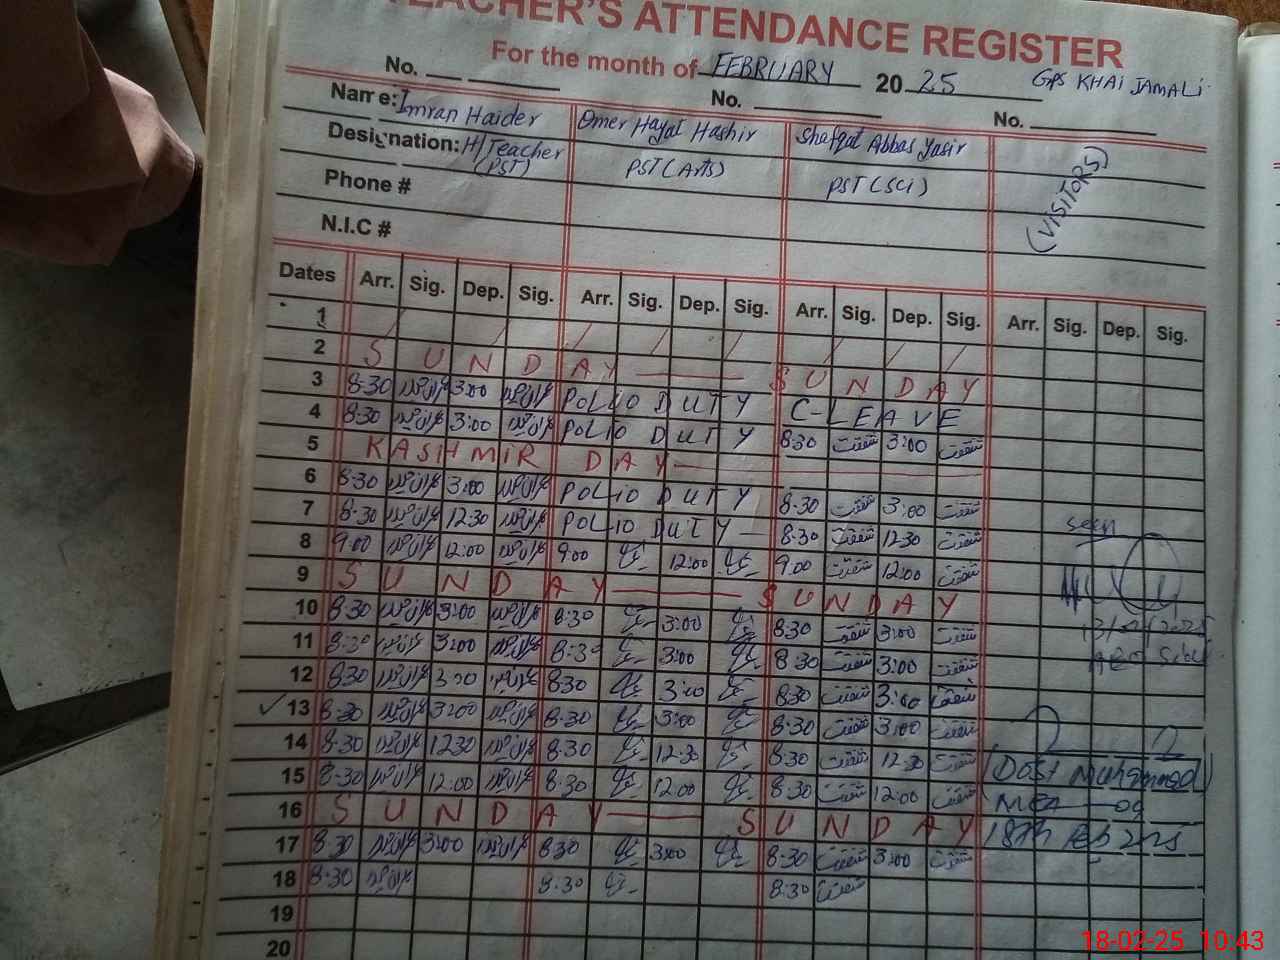 TEACHER'S ATTENDANCE REGISTER
For the month of FEBRUARY 2025 GPS KHAI JAMALI
No. No. No.
Name: Imran Haider Omer Hayat Hashir Shafqat Abbas Yasir
Designation: H/Teacher (PST) PST (Arts) PST (SCi) (VISITORS)
Phone #
N.I.C #
Dates Arr. Sig. Dep. Sig. Arr. Sig. Dep. Sig. Arr. Sig. Dep. Sig. Arr. Sig. Dep. Sig.
1
2 SUNDAY SUNDAY
3 8:30 3:00 POLIO DUTY C-LEAVE
4 8:30 3:00 POLIO DUTY 8:30 شفقت 3:00 شفقت
5 KASHMIR DAY
6 8:30 3:00 POLIO DUTY 8:30 شفقت 3:00 شفقت
7 8:30 12:30 POLIO DUTY 8:30 شفقت 12:30 شفقت
8 9:00 12:00 9:00 12:00 9:00 شفقت 12:00 شفقت seen
9 SUNDAY SUNDAY
10 8:30 3:00 8:30 3:00 8:30 شفقت 3:00 شفقت
11 8:30 3:00 8:30 3:00 8:30 شفقت 3:00 شفقت
12 8:30 3:00 8:30 3:00 8:30 شفقت 3:00 شفقت
✓ 13 8:30 3:00 8:30 3:00 8:30 شفقت 3:00 شفقت
14 8:30 12:30 8:30 12:30 8:30 شفقت 12:30 شفقت (Dost Muhammad)
15 8:30 12:00 8:30 12:00 8:30 شفقت 12:00 شفقت MEA
16 SUNDAY SUNDAY 18th Feb 2025
17 8:30 3:00 8:30 3:00 8:30 شفقت 3:00 شفقت
18 8:30 8:30 8:30 شفقت
19
20
18-02-25 10:43